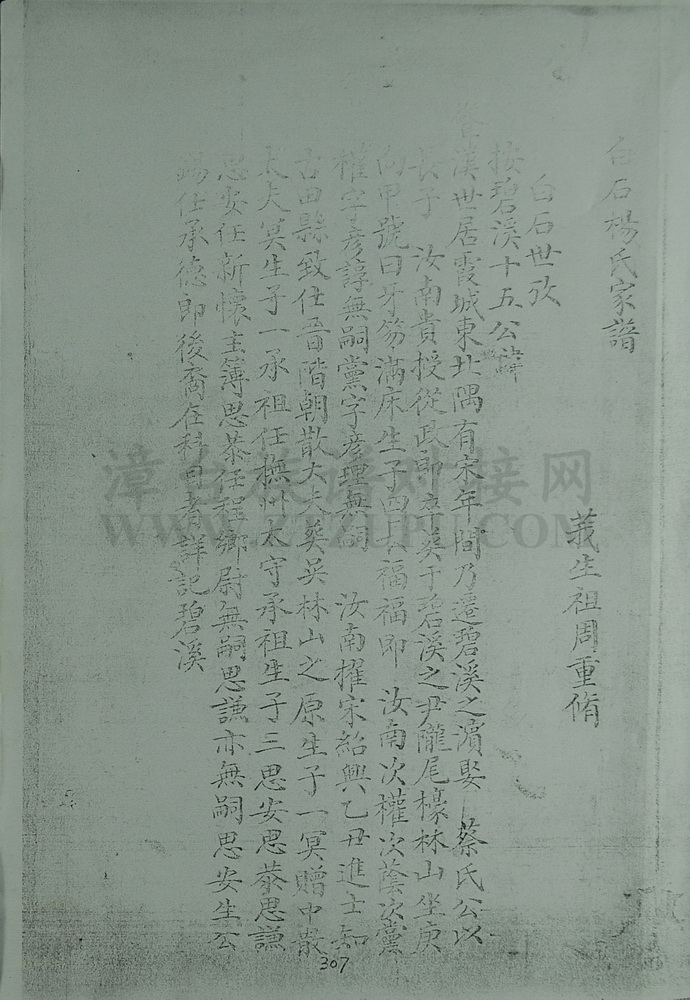 白石楊氏家譜
莪生祖周重脩
白石世攷
按碧溪十五公諱
溪世居霞城東北隅有宋年間乃遷碧溪之濵娶 蔡氏公以
長子 汝南貴授從政郎卒葵于碧溪之尹隴尾檺林山坐庚
向甲號曰牙笏滿床生子四長福福即 汝南次權次蔭次黨
權字彦諄無嗣黨字彦理無嗣 汝南擢宋紹興乙丑進士知
古田縣致仕晉階朝散大夫葵吴林山之原生子一冥贈中散
大夫冥生子一承祖任撫州太守承祖生子三思安思恭思謙
思安任新懷主簿思恭任程鄉尉無嗣思謙亦無嗣思安生公
錫任承德郎後裔在科目者詳記碧溪
307
漳台族谱对接网
WWW.ZTZUPU.COM